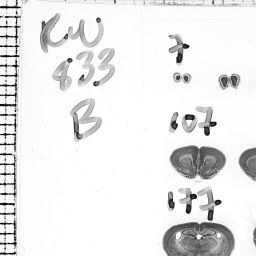 RW
833
B
7
107
177